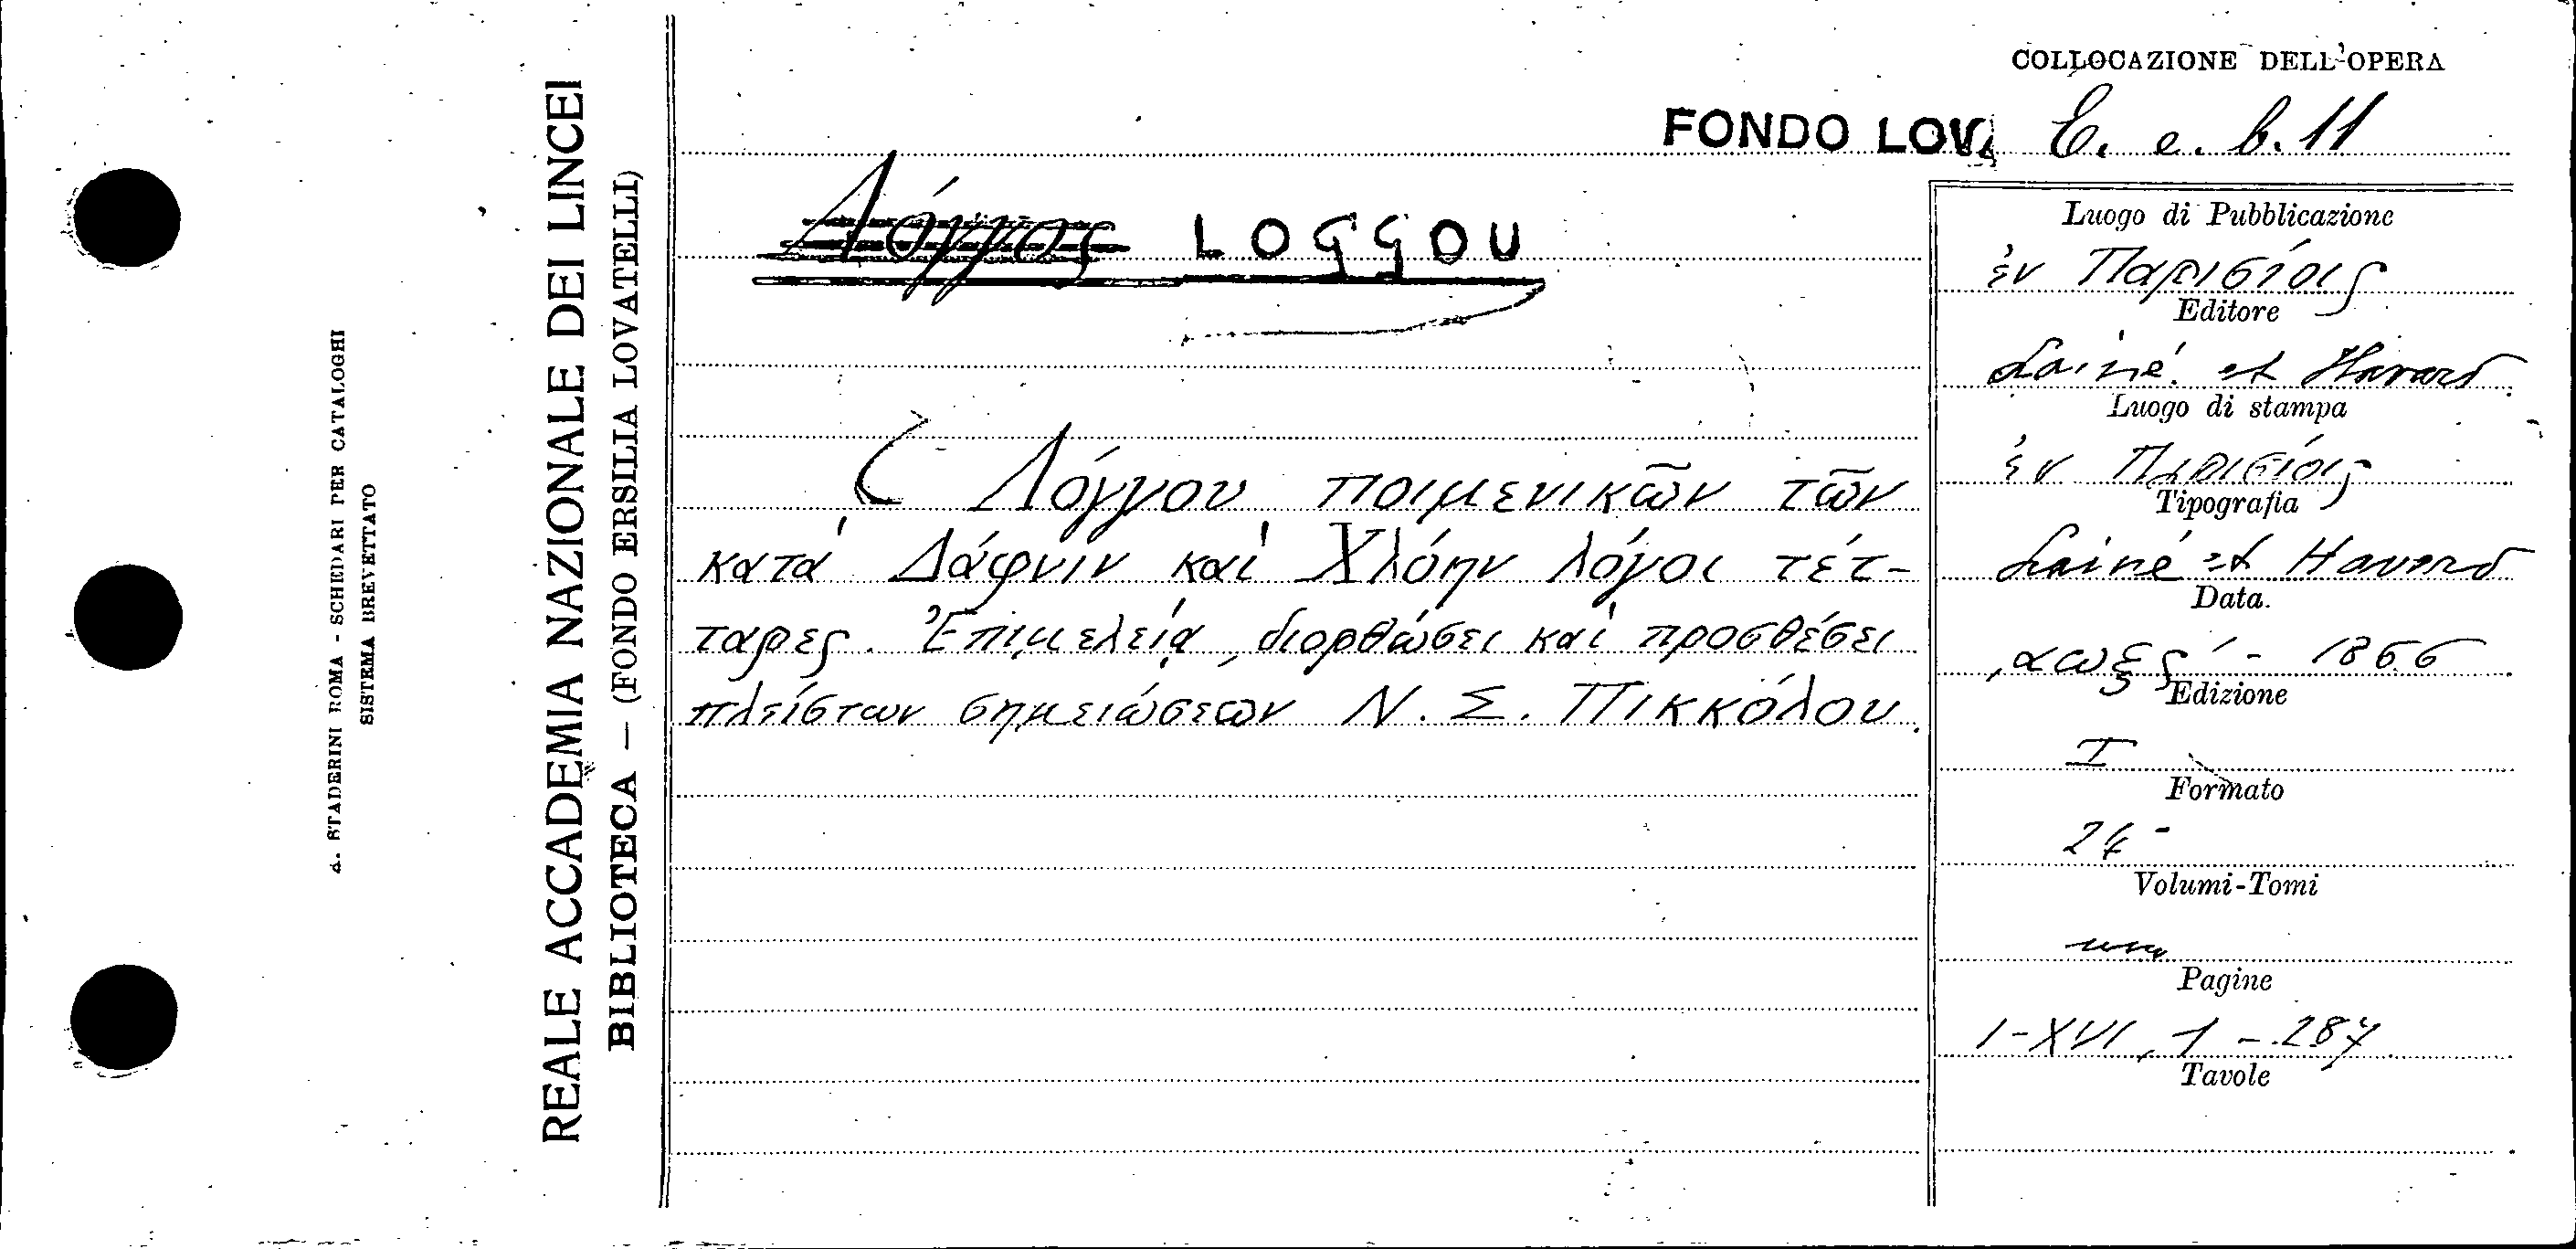 COLLOCAZIONE DELL'OPERA
FONDO LOV. E. e. b. 11
Λόγγος LOGGOU
Λόγγου ποιμενικῶν τῶν
κατὰ Δάφνιν καὶ Χλόην λόγοι τέτ-
ταρες. Ἐπιμελείᾳ, διορθώσει καὶ προσθέσει
πλείστων σημειώσεων Ν. Σ. Πικκόλου.
Luogo di Pubblicazione
ἐν Παρισίοις
Editore
Lainé et Havard
Luogo di stampa
ἐν Παρισίοις
Tipografia
Lainé et Havard
Data.
͵αωξϛ´ - 1866
Edizione
I
Formato
24-
Volumi-Tomi
uno
Pagine
I-XVI, 1 - 287
Tavole
REALE ACCADEMIA NAZIONALE DEI LINCEI
BIBLIOTECA — (FONDO ERSILIA LOVATELLI)
A. STADERINI ROMA - SCHEDARI PER CATALOGHI
SISTEMA BREVETTATO